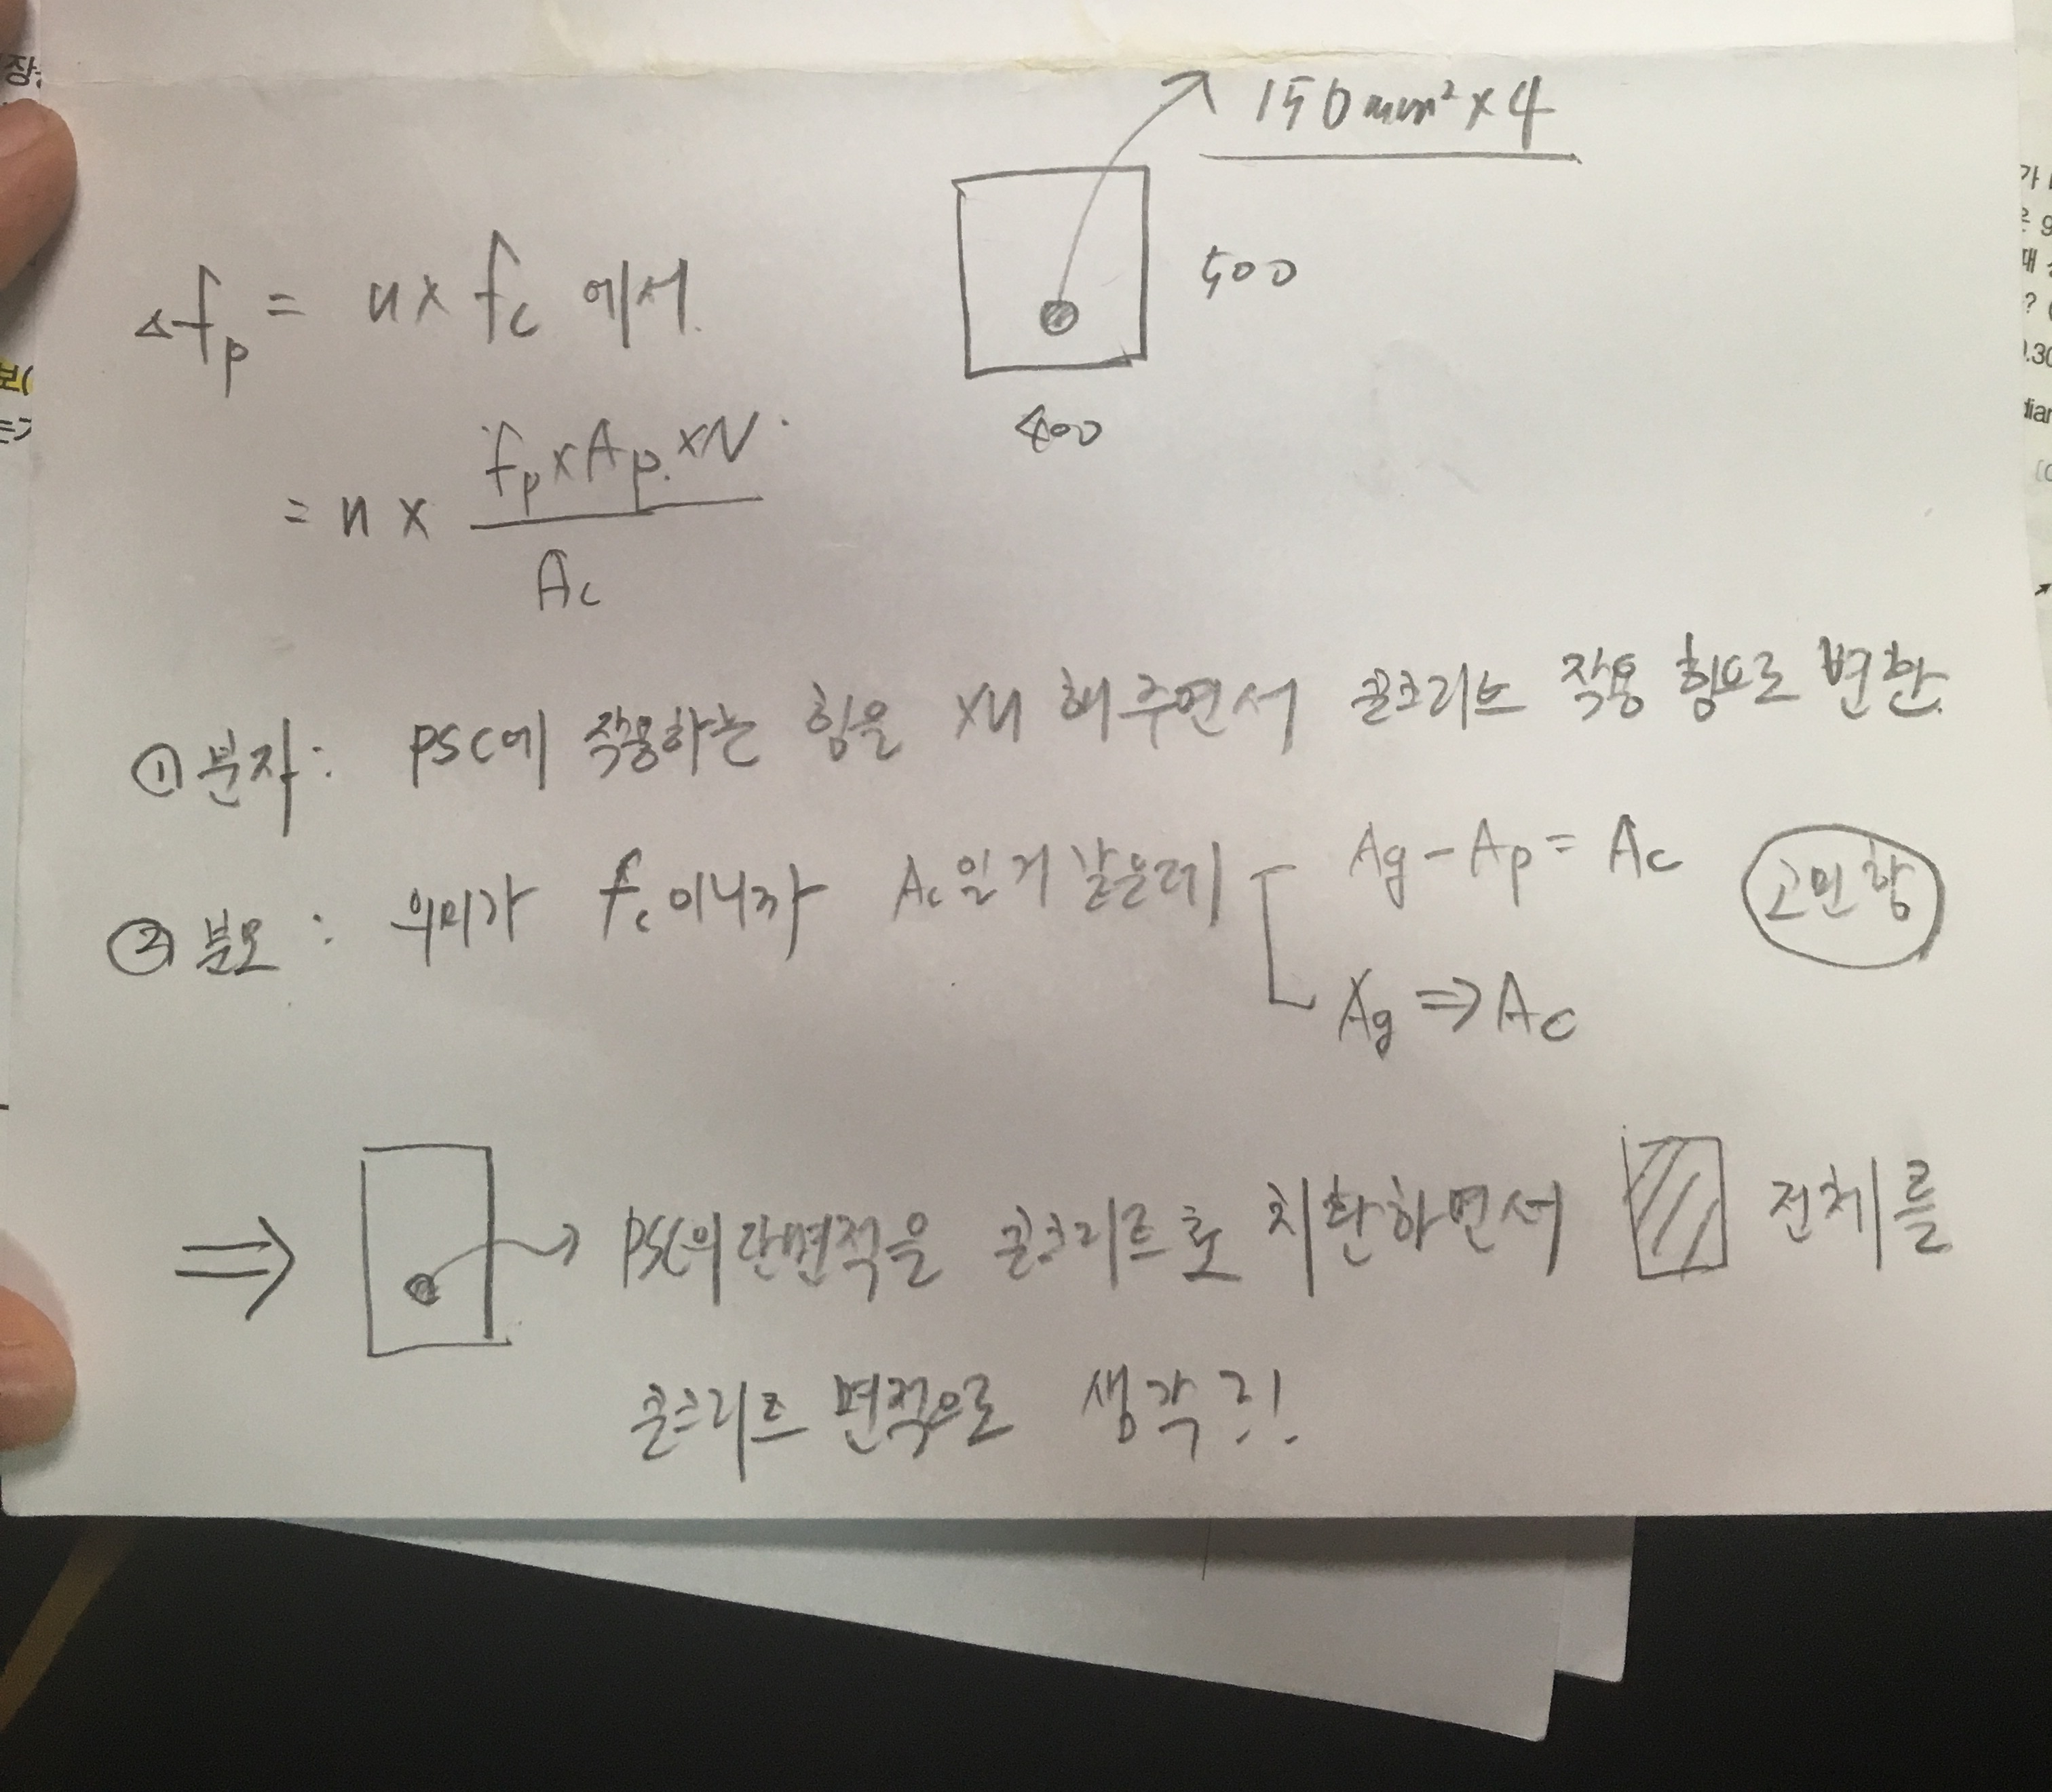 150mm² × 4
500
400
△fp = n × fc 에서.
= n × fp × Ap × N / Ac
① 분자 : PSC에 작용하는 힘을 ×n 해주면서 콘크리트 작용 힘으로 변환.
② 분모 : 의미가 fc이니까 Ac일거 같은데
Ag - Ap = Ac
고민함
Ag ⇒ Ac
⇒ PSC의 단면적을 콘크리트로 치환하면서 전체를
콘크리트 면적으로 생각?!
장
보(
가
은
때
?
.30
dian